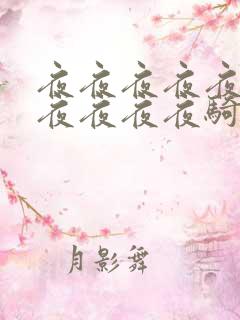 夜夜夜夜夜
夜夜夜夜騎
月影舞